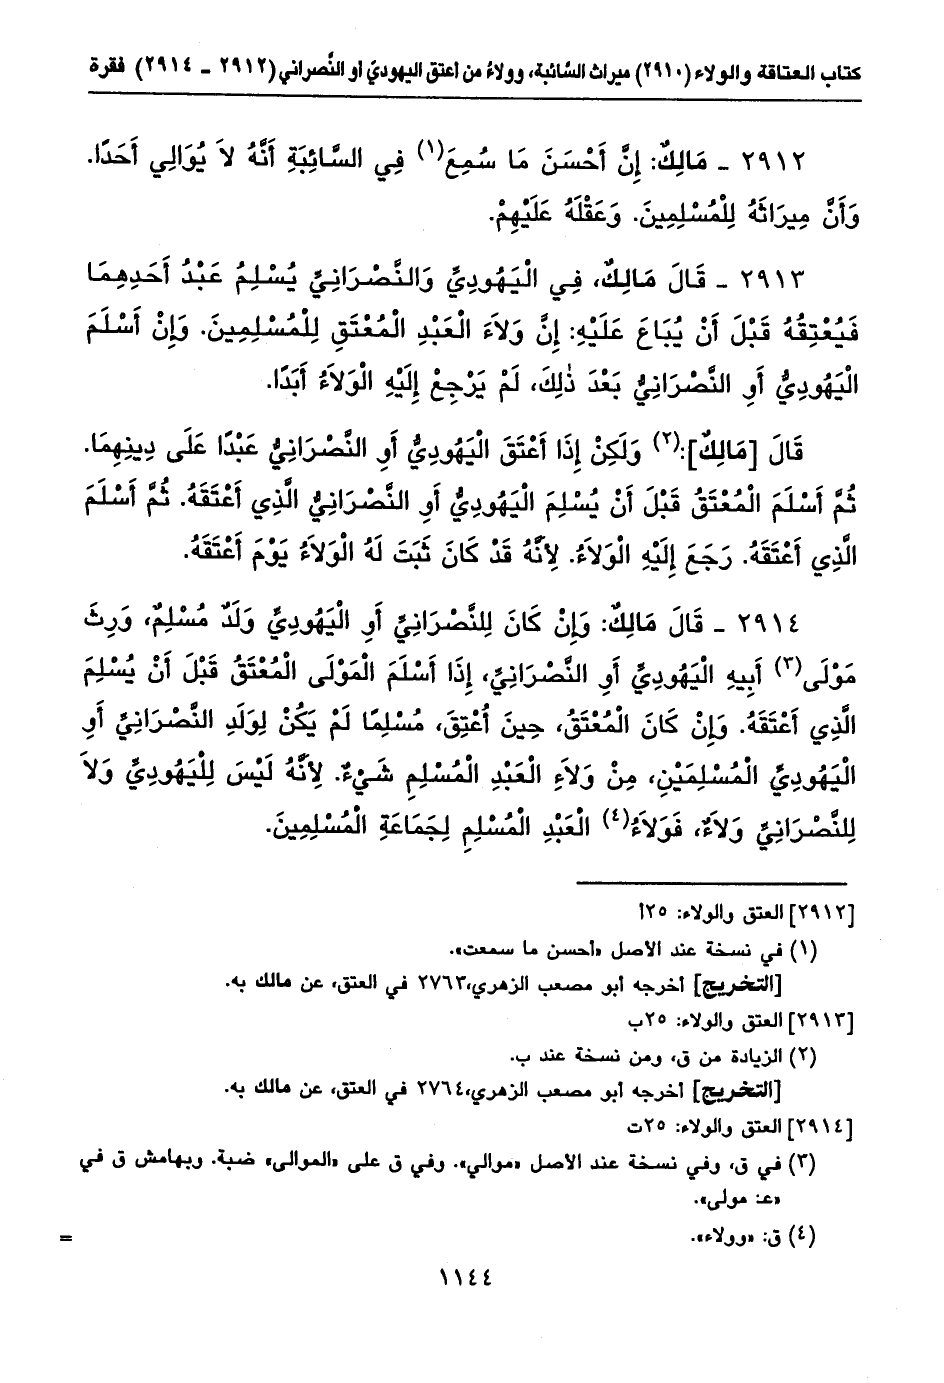 كتاب العتاقة والولاء (٢٩١٠) ميراث السَّائبة، وولاءُ من اعتق اليهوديّ او النَّصراني (٢٩١٢ - ٢٩١٤) فقرة
٢٩١٢ - مَالِكٌ: إِنَّ أَحْسَنَ مَا سُمِعَ(١) فِي السَّائِبَةِ أَنَّهُ لاَ يُوَالِي أَحَدًا.
وَأَنَّ مِيرَاثَهُ لِلْمُسْلِمِينَ. وَعَقْلَهُ عَلَيْهِمْ.
٢٩١٣ - قَالَ مَالِكٌ، فِي الْيَهُودِيِّ وَالنَّصْرَانِيِّ يُسْلِمُ عَبْدُ أَحَدِهِمَا
فَيُعْتِقُهُ قَبْلَ أَنْ يُبَاعَ عَلَيْهِ: إِنَّ وَلاَءَ الْعَبْدِ الْمُعْتَقِ لِلْمُسْلِمِينَ. وَإِنْ أَسْلَمَ
الْيَهُودِيُّ أَوِ النَّصْرَانِيُّ بَعْدَ ذٰلِكَ، لَمْ يَرْجِعْ إِلَيْهِ الْوَلاَءُ أَبَدًا.
قَالَ [مَالِكٌ]:(٢) وَلَكِنْ إِذَا أَعْتَقَ الْيَهُودِيُّ أَوِ النَّصْرَانِيُّ عَبْدًا عَلَى دِينِهِمَا.
ثُمَّ أَسْلَمَ الْمُعْتَقُ قَبْلَ أَنْ يُسْلِمَ الْيَهُودِيُّ أَوِ النَّصْرَانِيُّ الَّذِي أَعْتَقَهُ. ثُمَّ أَسْلَمَ
الَّذِي أَعْتَقَهُ. رَجَعَ إِلَيْهِ الْوَلاَءُ. لِأَنَّهُ قَدْ كَانَ ثَبَتَ لَهُ الْوَلاَءُ يَوْمَ أَعْتَقَهُ.
٢٩١٤ - قَالَ مَالِكٌ: وَإِنْ كَانَ لِلنَّصْرَانِيِّ أَوِ الْيَهُودِيِّ وَلَدٌ مُسْلِمٌ، وَرِثَ
مَوْلَى(٣) أَبِيهِ الْيَهُودِيِّ أَوِ النَّصْرَانِيِّ، إِذَا أَسْلَمَ الْمَوْلَى الْمُعْتَقُ قَبْلَ أَنْ يُسْلِمَ
الَّذِي أَعْتَقَهُ. وَإِنْ كَانَ الْمُعْتَقُ، حِينَ أُعْتِقَ، مُسْلِمًا لَمْ يَكُنْ لِوَلَدِ النَّصْرَانِيِّ أَوِ
الْيَهُودِيِّ الْمُسْلِمَيْنِ، مِنْ وَلاَءِ الْعَبْدِ الْمُسْلِمِ شَيْءٌ. لِأَنَّهُ لَيْسَ لِلْيَهُودِيِّ وَلاَ
لِلنَّصْرَانِيِّ وَلاَءٌ، فَوَلاَءُ(٤) الْعَبْدِ الْمُسْلِمِ لِجَمَاعَةِ الْمُسْلِمِينَ.
[٢٩١٢] العتق والولاء: ٢٥أ
(١) في نسخة عند الاصل «أحسن ما سمعت».
[التخريج] أخرجه أبو مصعب الزهري،٢٧٦٣ في العتق، عن مالك به.
[٢٩١٣] العتق والولاء: ٢٥ب
(٢) الزيادة من ق، ومن نسخة عند ب.
[التخريج] أخرجه أبو مصعب الزهري،٢٧٦٤ في العتق، عن مالك به.
[٢٩١٤] العتق والولاء: ٢٥ت
(٣) في ق، وفي نسخة عند الاصل «موالي». وفي ق على «الموالى» ضبة. وبهامش ق في
«عـ: مولى».
(٤) ق: «وولاء».
=
١١٤٤